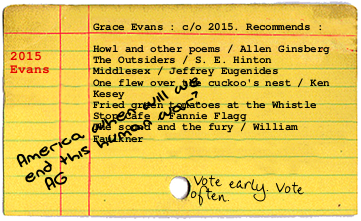 Grace Evans : c/o 2015. Recommends :
2015
Evans
Howl and other poems / Allen Ginsberg
The Outsiders / S. E. Hinton
Middlesex / Jeffrey Eugenides
One flew over the cuckoo's nest / Ken
Kesey
Fried green tomatoes at the Whistle
Stop Cafe / Fannie Flagg
The sound and the fury / William
Faulkner
America when will we
end this human war?
AG
Vote early. Vote
often.